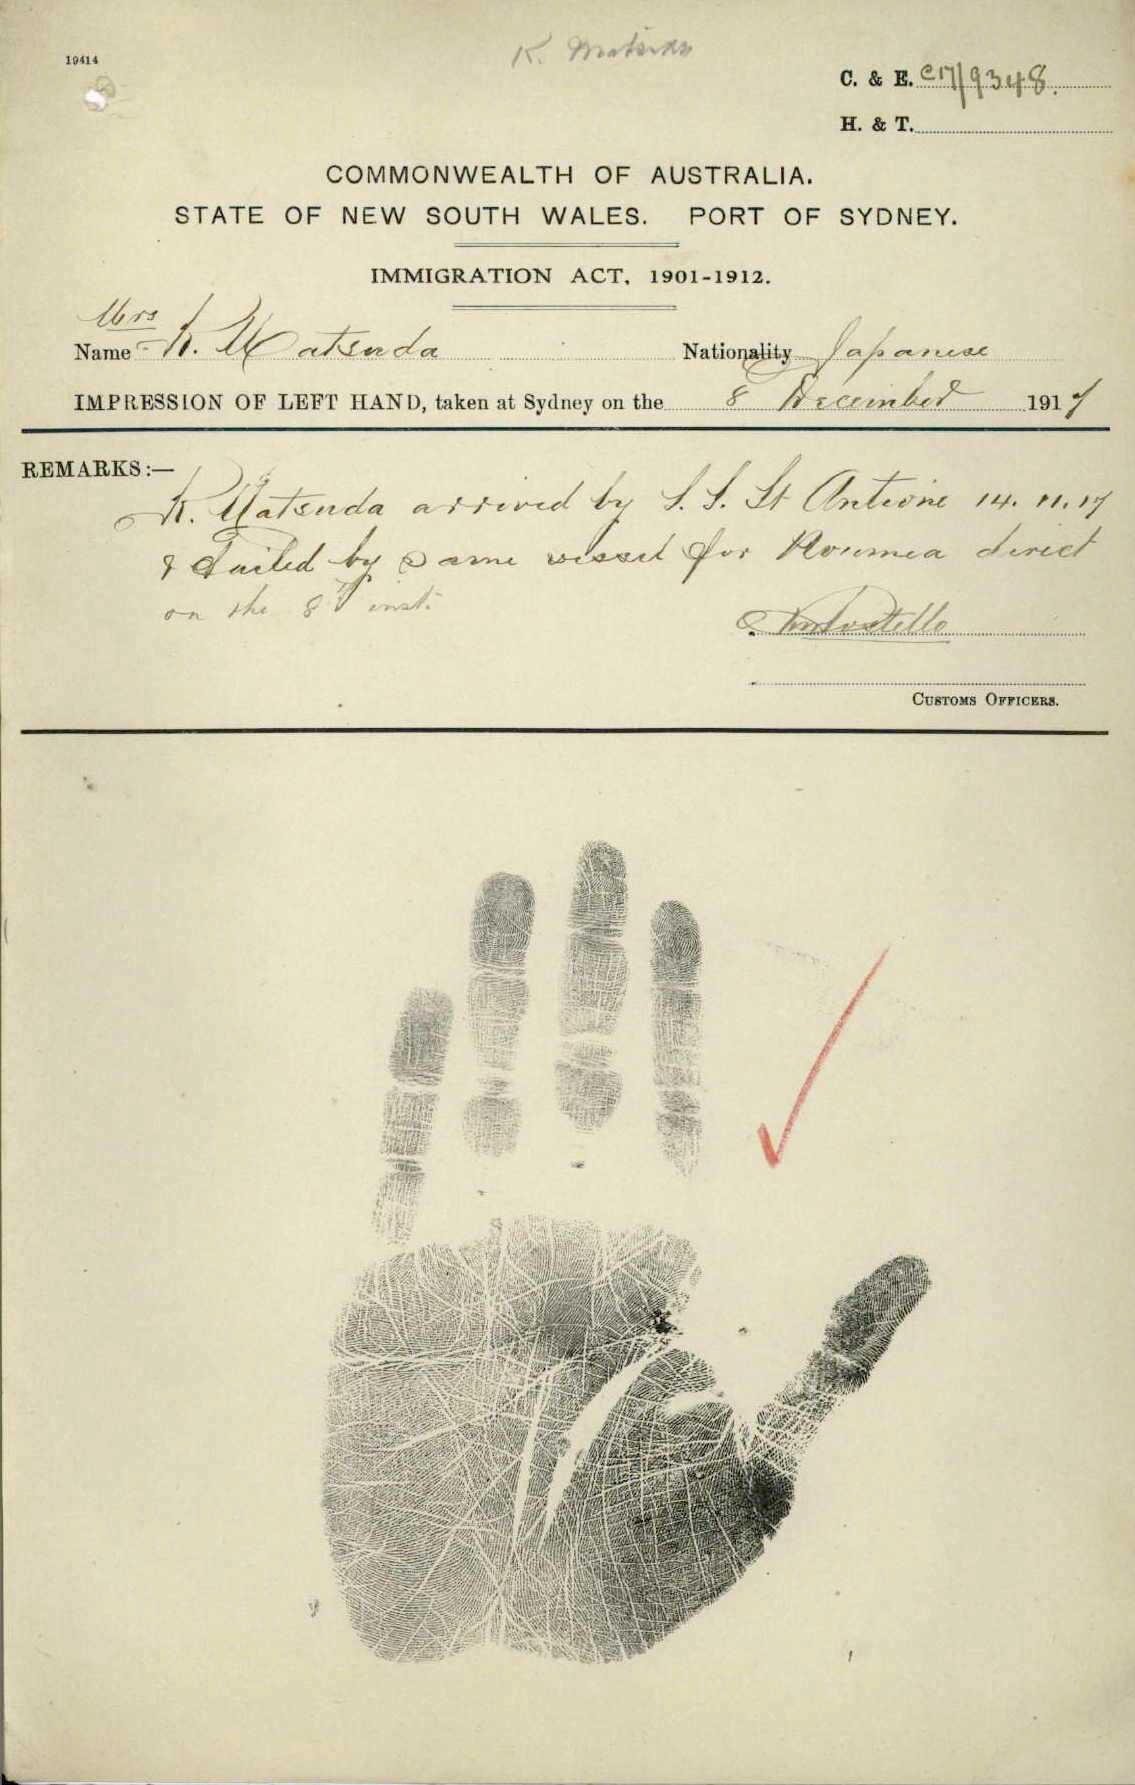 19414
K. Matsuda
C. & E. C17/9348.
H. & T.
COMMONWEALTH OF AUSTRALIA.
STATE OF NEW SOUTH WALES. PORT OF SYDNEY.
IMMIGRATION ACT, 1901-1912.
Mrs
Name K. Matsuda Nationality Japanese
IMPRESSION OF LEFT HAND, taken at Sydney on the 8 December 1917
REMARKS:—
K. Matsuda arrived by S.S. St Antoine 14.11.17
& Sailed by same vessel for Noumea direct
on the 8th inst.
Costello
CUSTOMS OFFICERS.